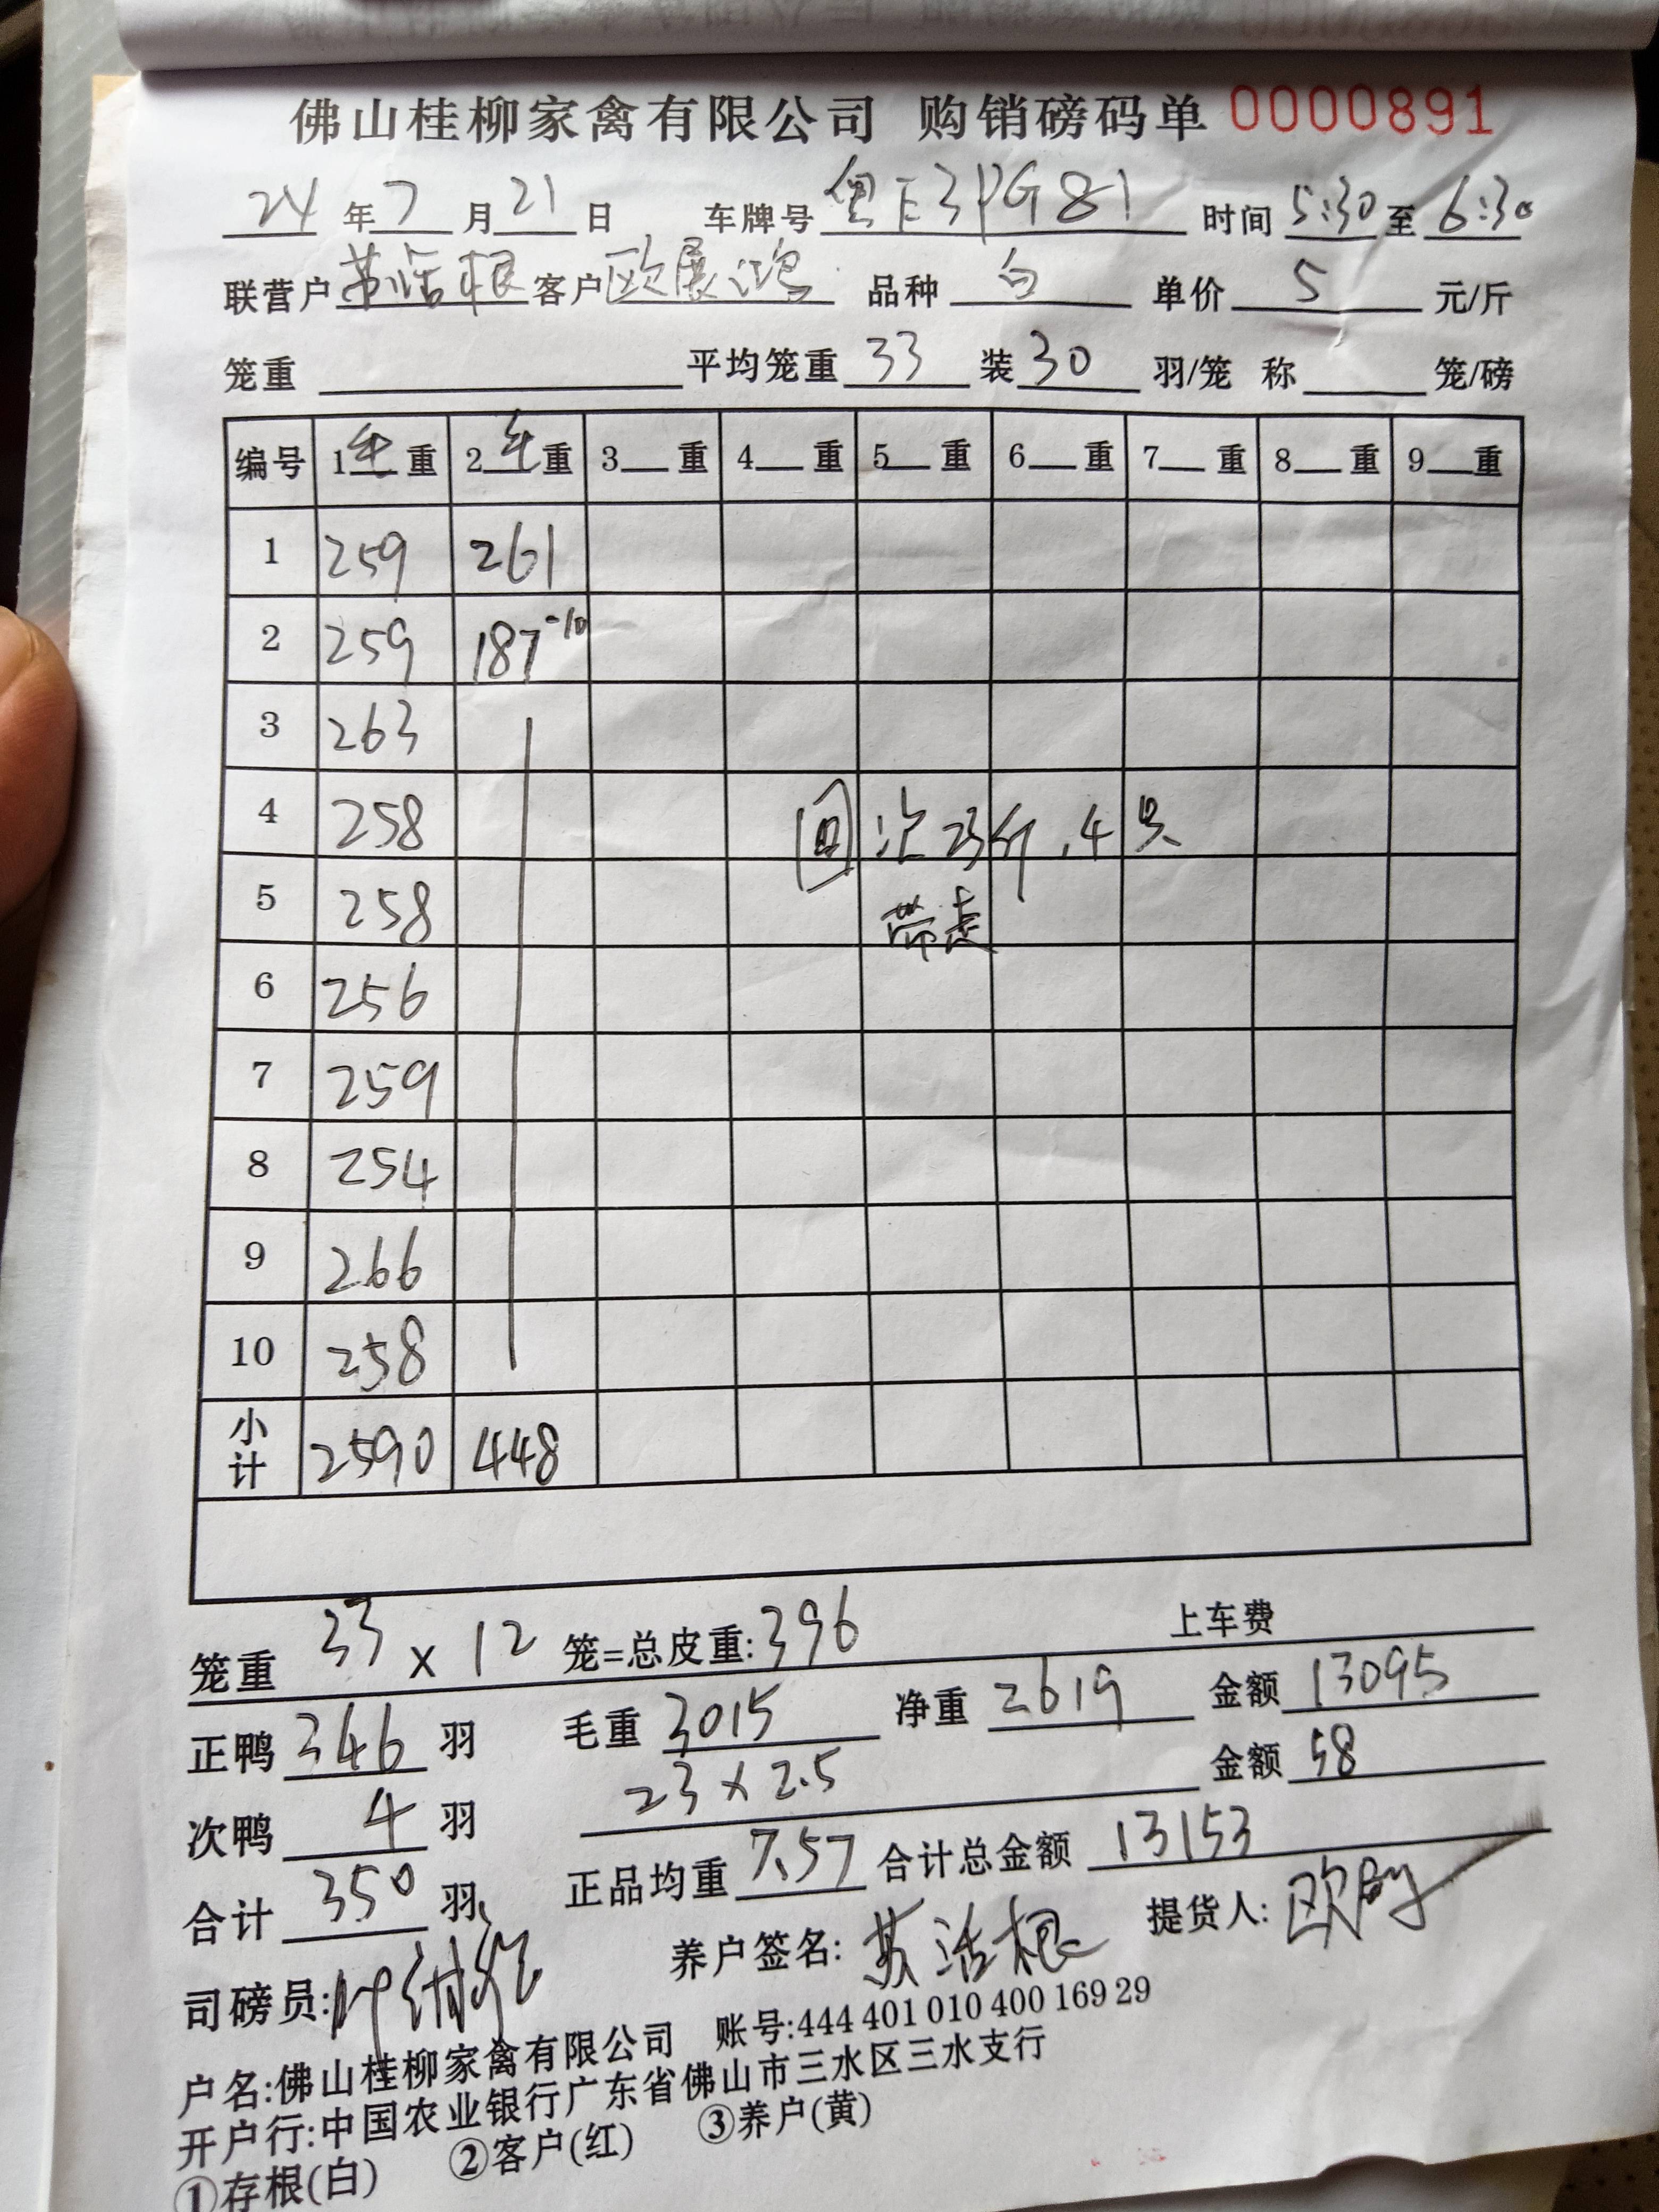 佛山桂柳家禽有限公司 购销磅码单 0000891
24年7月21日 车牌号 粤E3PG81 时间 5:30至6:30
联营户 苏活根 客户 欧展鸿 品种 白 单价 5 元/斤
笼重 平均笼重 33 装 30 羽/笼 称 笼/磅
编号 1毛重 2毛重 3重 4重 5重 6重 7重 8重 9重
1 259 261
2 259 187-10
3 263
4 258 回次23斤.4只
5 258 带走
6 256
7 259
8 254
9 266
10 258
小计 2590 448
笼重 33 x 12 笼=总皮重:396 上车费
正鸭 346 羽 毛重 3015 净重 2619 金额 13095
次鸭 4 羽 23 x 2.5 金额 58
合计 350 羽 正品均重 7.57 合计总金额 13153
司磅员: 养户签名: 苏活根 提货人: 欧
户名:佛山桂柳家禽有限公司 账号:444 401 010 400 169 29
开户行:中国农业银行广东省佛山市三水区三水支行
①存根(白) ②客户(红) ③养户(黄)